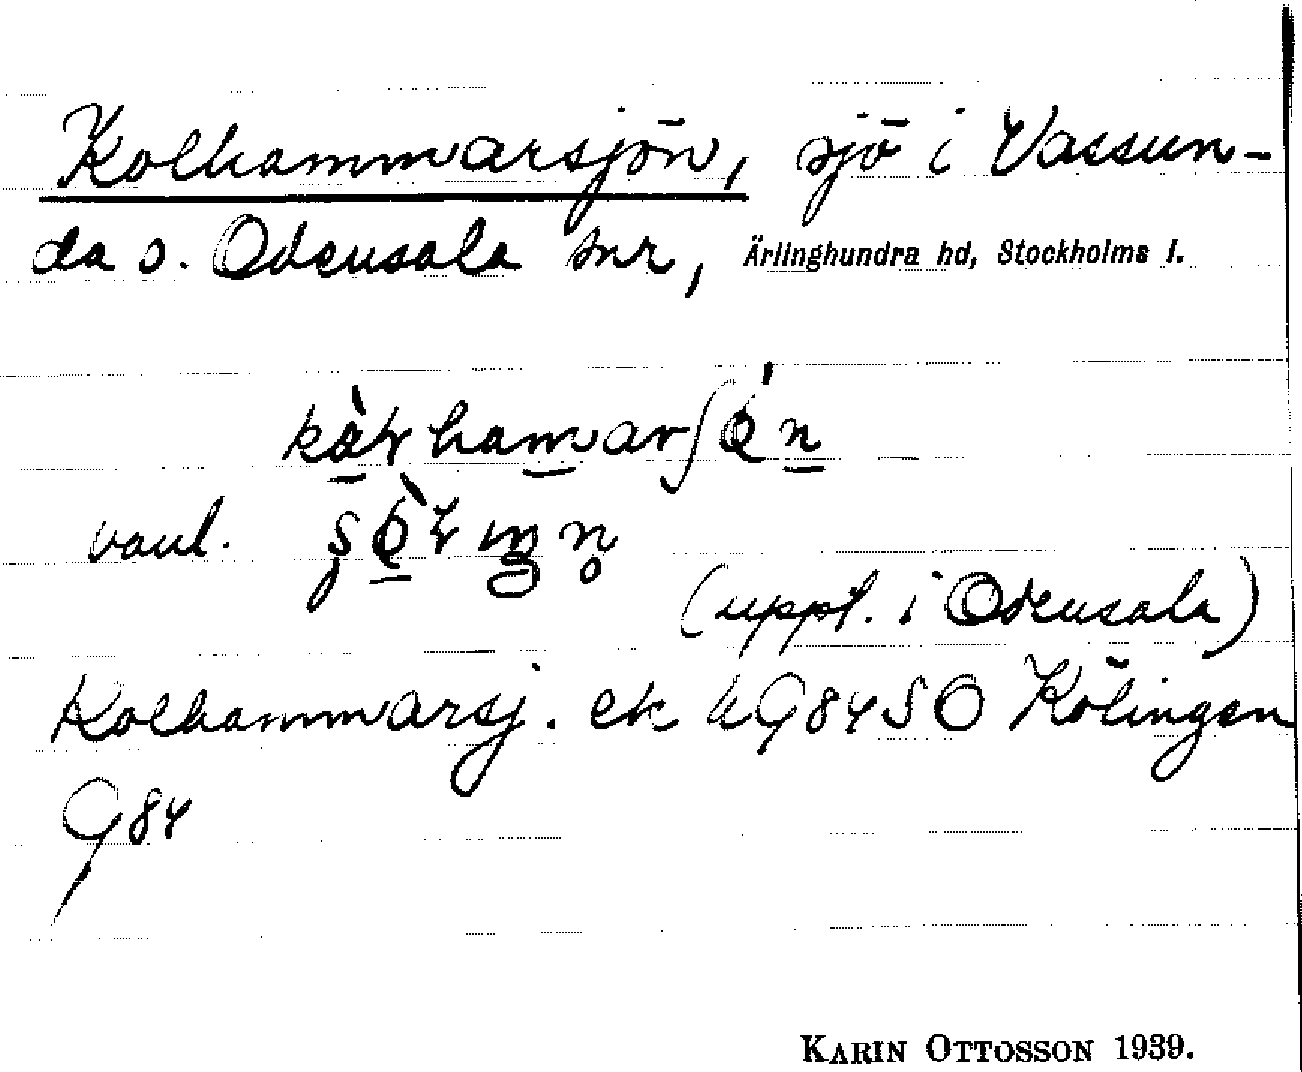 Kolhammarsjön, sjö i Vassun-
da o. Odensala snr, Ärlinghundra hd, Stockholms l.
vanl.
(uppt. i Odensala)
Kolhammarsj. ek G84SO Kölingen
G84
KARIN OTTOSSON 1939.